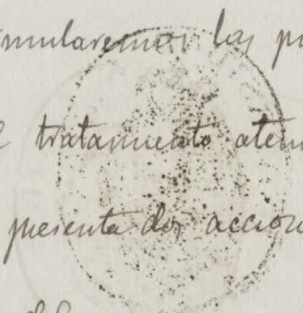 mularemos los p
tratamiento aten
presenta dos accion